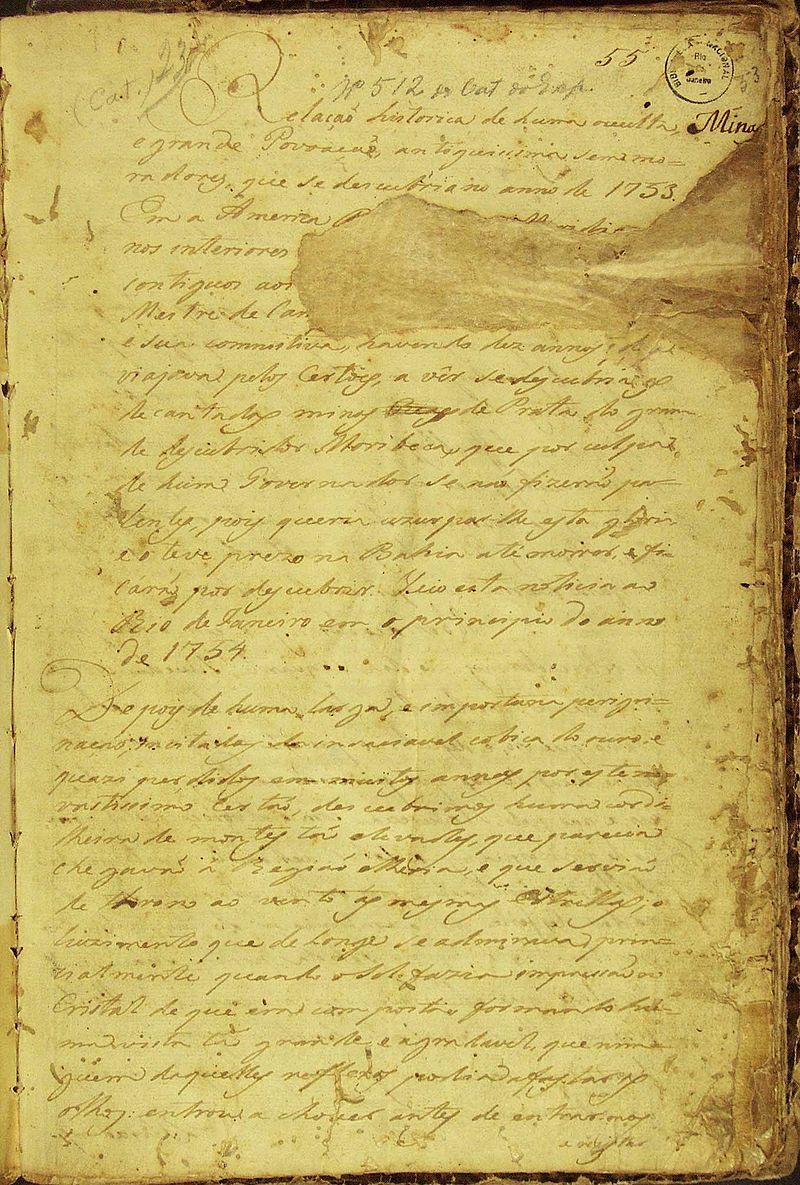 (Cat.) 23
55
BIBLIOTHECA NACIONAL Rio de Janeiro
53
Nº 512 do Cat. do Exp.
Minas
Relação historica de huma occulta,
e grande Povoação, antiquissima sem mo-
radores, que se descubrio no anno de 1753.
Em a America
nos interiores
contiguos aos
Mestre de Can
e sua commitiva, havendo dez annos, q
viajava pelos Certões, a vêr se descubria as
decantadas minas de Prata do gran-
de descubridor Moribeca, que por culpa
de hum Governador se não fizerão pa-
tentes, pois queria uzurparlhe esta gloria
e o teve prezo na Bahia até morrer, e fi-
carão por descubrir. Veio esta noticia ao
Rio de Janeiro em o principio do anno
de 1754.
Depois de huma larga, e importuna perigri-
nação, incitados da insaciavel cobiça do ouro, e
quazi perdidos em muitos annos por este
vastissimo Certão, descubrimos huma cordi-
lheira de montes tão elevados, que parecia
chegavão à Região etheria, e que servião
de throno ao vento às mesmas Estrellas; o
luzimento que de longe se admirava prin-
cialmente quando o Sol fazia impressão ao
Cristal de que era composta formando hu-
ma vista tão grande, e agradavel, que nin-
guem daquelles reflexos podia afastar os
olhos: entrou a chover antes de entrarmos
a registar